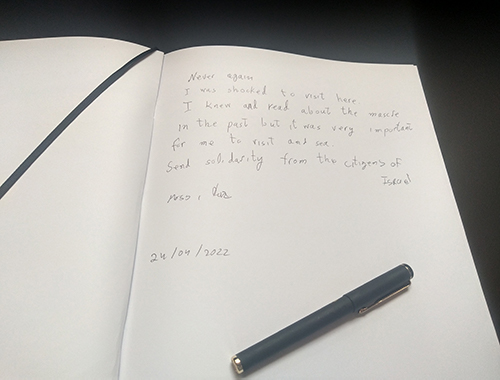 Never again
I was shocked to visit here
I knew and read about the mascre
in the past but it was very important
for me to visit and see.
Send solidarity from the citizens of
Israel
24/04/2022